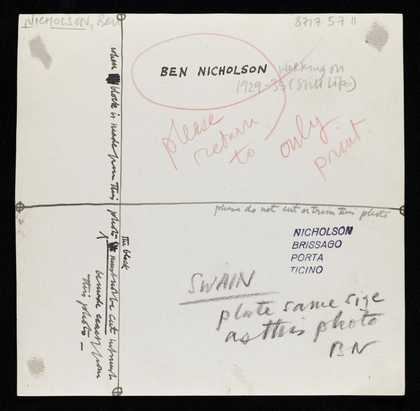 NICHOLSON, Ben
8717 5 7 11
BEN NICHOLSON
working on
1929-35 (Still Life)
please
return
to only
print.
please do not cut or trim this photo
when block is made from this photo
the block
must not be cut
be made exact from
this photo
NICHOLSON
BRISSAGO
PORTA
TICINO
SWAIN
plate same size
as this photo
BN